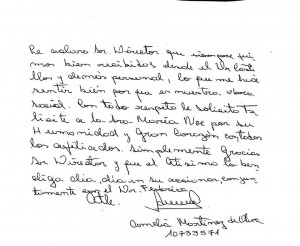 Le aclaro Sr Director que siempre fui
mos bien recibidos desde el Dr
y demás personal, lo que me hace
sentir bien por que es nuestra obra
social. Con todo respeto le solicito Fe
licite a la Dra María Noe por su
Humanidad y Gran Corazón con todos
los afiliados. Simplemente Gracias
Sr Director y que el Altísimo lo ben
diga día a día en su accionar, conjun
tamente con el Dr. Federico
Atte.
Martinez de
10739571